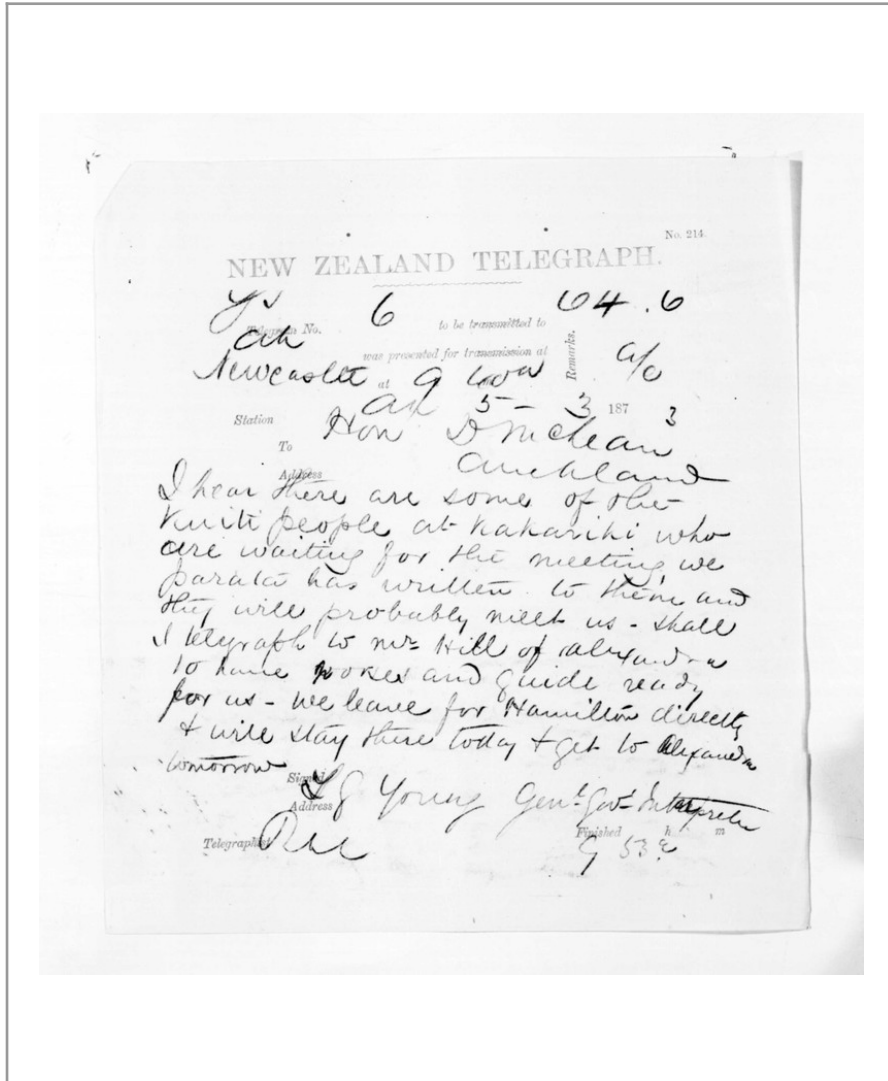 No. 214.
NEW ZEALAND TELEGRAPH.
Telegram No. 6 to be transmitted to 64.6
was presented for transmission at Remarks.
Newcastle at 9
Station 5 - 3 187 3
To Hon D McLean
Address Auckland
I hear there are some of the
Kuiti people at Kakariki who
are waiting for the meeting, we
parata has written to them and
they will probably meet us - shall
I telegraph to Mr Hill of alexandra
to have and guide ready
for us - we leave for Hamilton directly
& will stay there today & get to Alexandra
tomorrow
Signed Young Genl. Govt Interpreter
Address
Telegraphist Finished h. m
9 53